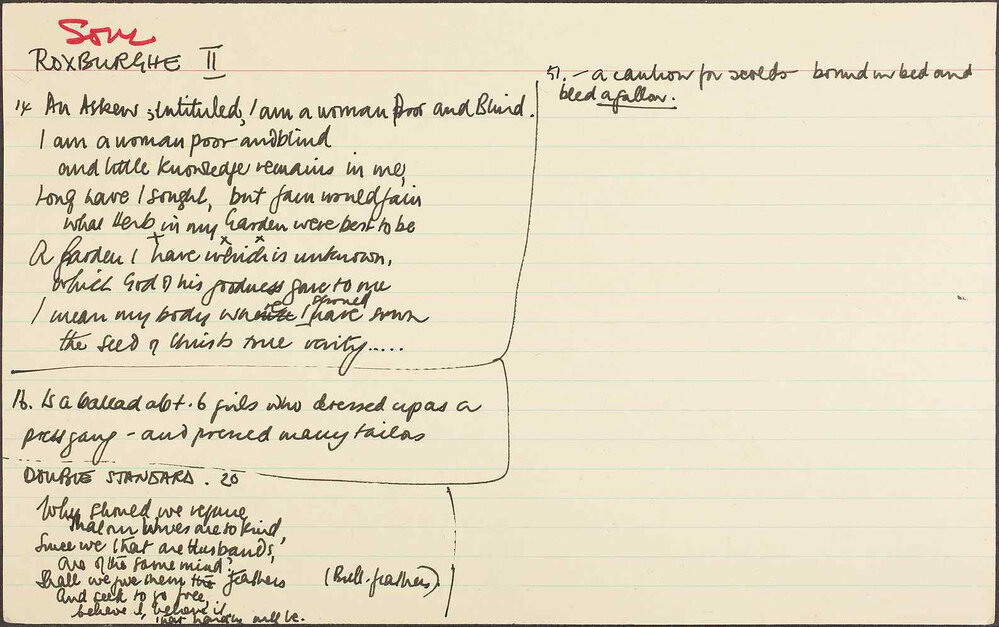 Song
ROXBURGHE II
14 An Askew, Intituled, I am a woman Poor and Blind.
I am a woman poor and blind
and little knowledge remains in me,
Long have I sought, but fain would fain
what Herb in my Garden were best to be
A garden I have which is unknown,
which God of his goodness gave to me
I mean my body where I have sowed
the seed of Christs true verity.....
16. Is a ballad abt. 6 girls who dressed up as a
press gang - and pressed many tailors
DOUBLE STANDARD. 20
Why should we repine
that our wives are so kind,
Since we that are Husbands,
are of the same mind?
Shall we give them the feathers (Bull-feathers).
And seek to go free,
believe it, believe it,
that hardly will be.
51. - a caution for scolds - bound in bed and
bleed a gallon.